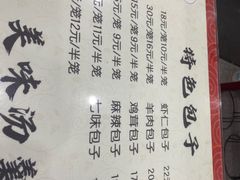 特色包子
18元/笼10元/半笼
虾仁包子 22
30元/笼16元/半笼
羊肉包子 20
15元/笼 9元/半笼
鸡茸包子 17
元/笼 9元/半笼
麻辣包子
元/笼 11元/半笼
七味包子
元/笼12元/半笼
美味汤羹